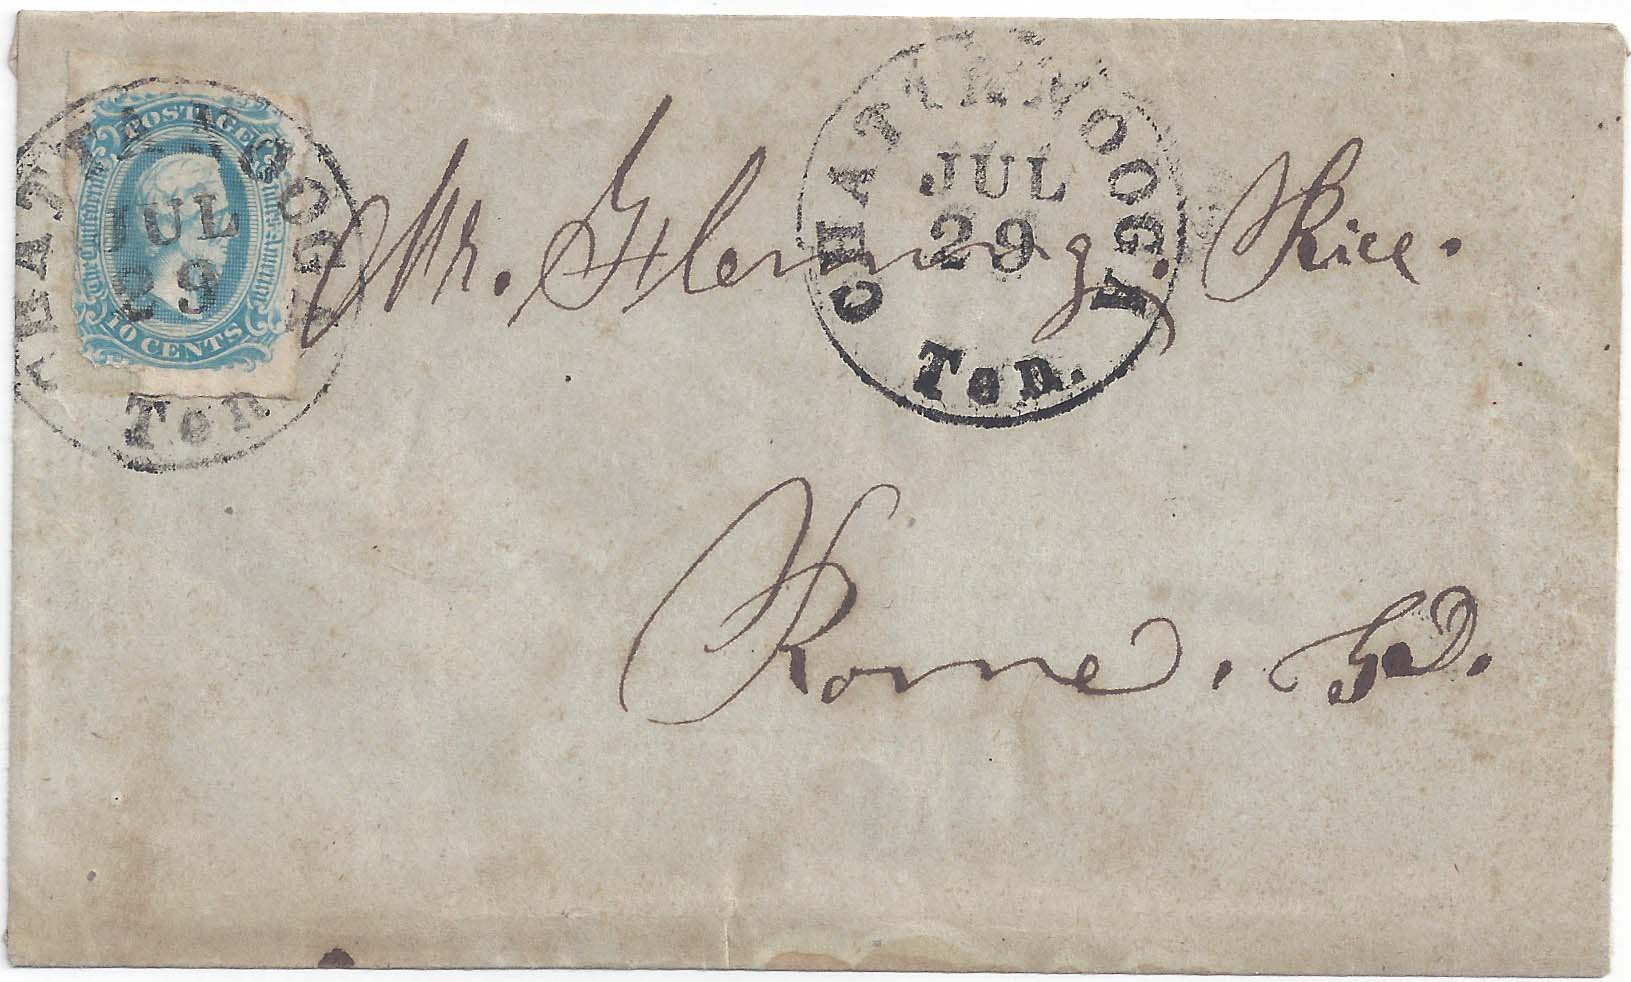 POSTAGE
The Confederate States of America
10 CENTS
CHATTANOOGA
JUL
29
Ten
CHATTANOOGA
JUL
29
Ten.
Mr. Fleming. Rice.
Rome. Ga.